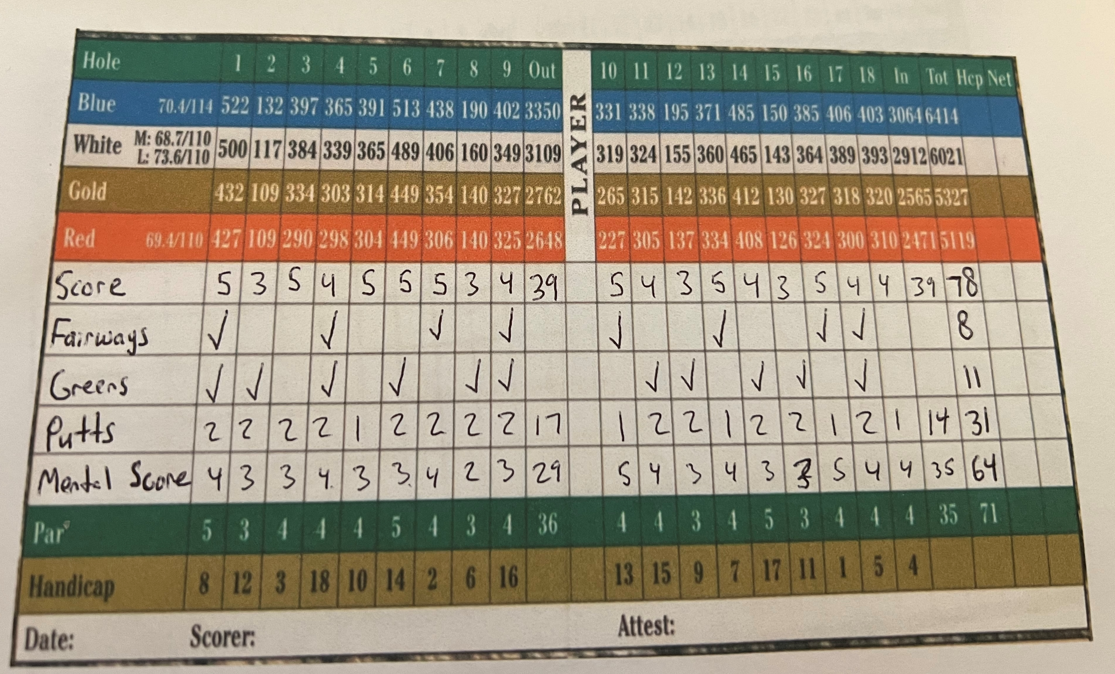 Hole 1 2 3 4 5 6 7 8 9 Out PLAYER 10 11 12 13 14 15 16 17 18 In Tot Hcp Net
Blue 70.4/114 522 132 397 365 391 513 438 190 402 3350 331 338 195 371 485 150 385 406 403 3064 6414
White M: 68.7/110 L: 73.6/110 500 117 384 339 365 489 406 160 349 3109 319 324 155 360 465 143 364 389 393 2912 6021
Gold 432 109 334 303 314 449 354 140 327 2762 265 315 142 336 412 130 327 318 320 2565 5327
Red 69.4/110 427 109 290 298 304 449 306 140 325 2648 227 305 137 334 408 126 324 300 310 2471 5119
Score 5 3 5 4 5 5 5 3 4 39 5 4 3 5 4 3 5 4 4 39 78
Fairways ✓ ✓ ✓ ✓ ✓ ✓ ✓ ✓ 8
Greens ✓ ✓ ✓ ✓ ✓ ✓ ✓ ✓ ✓ ✓ ✓ 11
Putts 2 2 2 2 1 2 2 2 2 17 1 2 2 1 2 2 1 2 1 14 31
Mental Score 4 3 3 4 3 3 4 2 3 29 5 4 3 4 3 3 5 4 4 35 64
Par 5 3 4 4 4 5 4 3 4 36 4 4 3 4 5 3 4 4 4 35 71
Handicap 8 12 3 18 10 14 2 6 16 13 15 9 7 17 11 1 5 4
Date: Scorer: Attest: